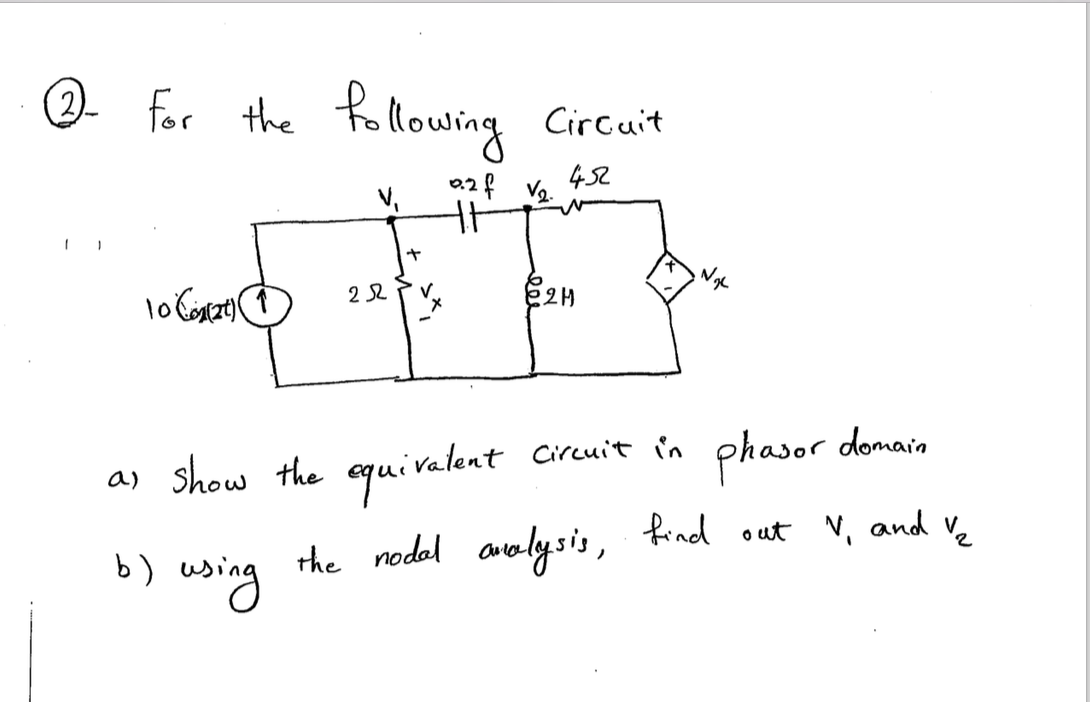 2- For the following Circuit
0.2 f V2. 4Ω
V1
+
10 Cos(2t) 2Ω Vx 2H + Vx
- -
a) Show the equivalent circuit in phasor domain
b) using the nodal analysis, find out V1 and V2